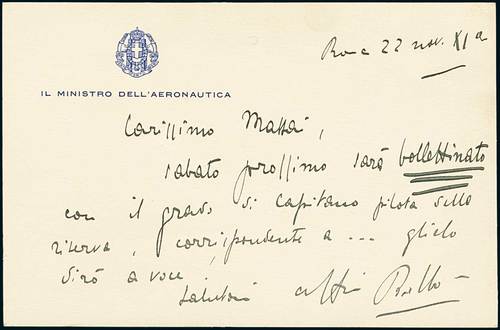 Roma 22 nov. XIª
IL MINISTRO DELL'AERONAUTICA
Carissimo Massai,
sabato prossimo sarà bollettinato
con il grado di Capitano pilota della
riserva, corrispondente a ... glielo
dirò a voce.
Saluti affmi Balbo